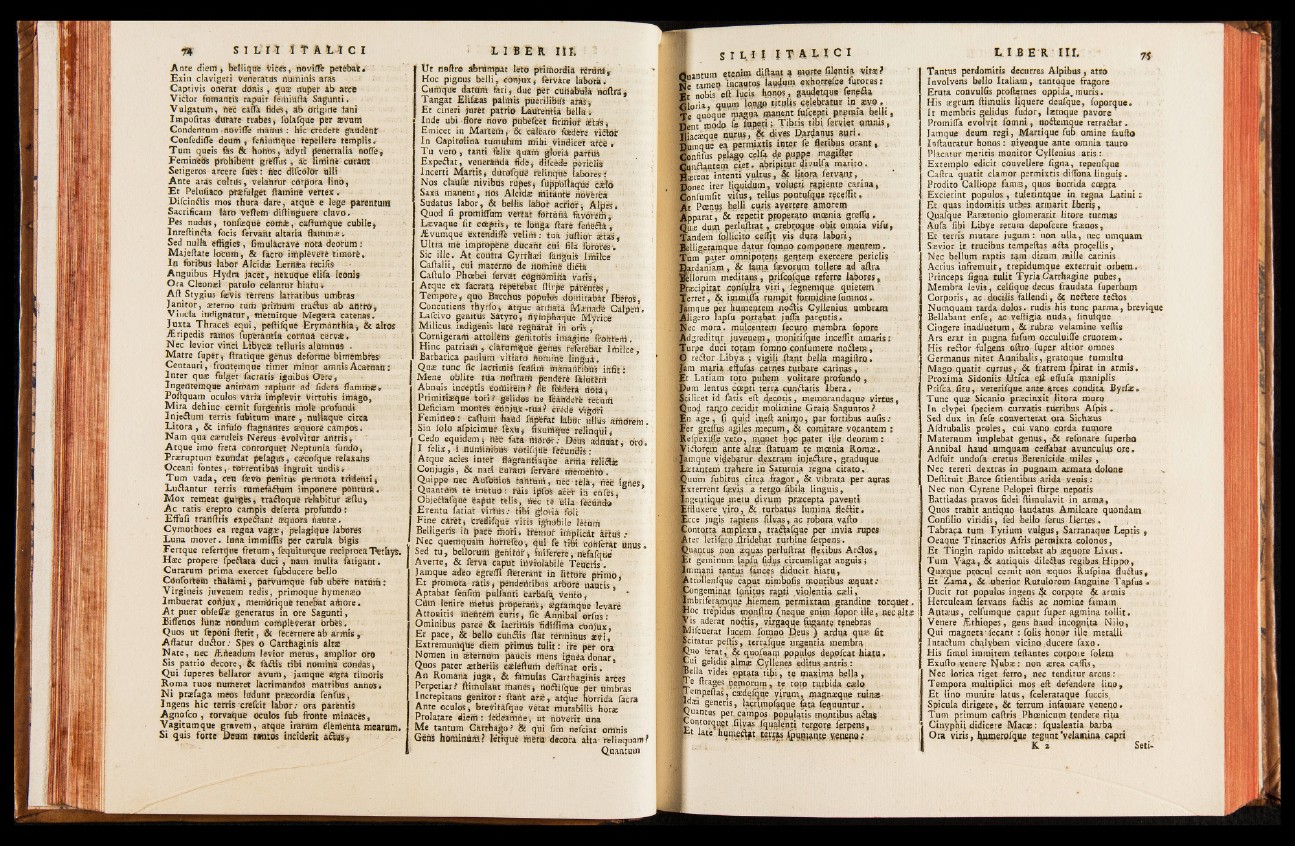 74 SILII ITALICI
Ante diem, bellique vices, novisse petebat.
Exin clavigeri veneratus numinis aras
Captivis onerat donis, quæ nuper ab arce
Victor fumantis rapuit semiusta Sagunti.
Vulgatum, nec cassa fides, ab origine fani
Impositas durare trabes, solasque per ævum
Condentum novisse manus: hic credere gaudent
Consedisse deum, seniumque repellere templis.
Tum queis fas & honos, adyti penetralia nosse,
Femineos prohibent gressus, ac limine curant
Setigeros arcere sues: nec discolor ulli
Ante aras cultus, velantur corpora lino,
Et Pelusiaco præfulget stamine vertex.
Discinctis mos thura dare, atque e lege parentum
Sacrificam lato vestem distinguere clavo.
Pes nudus, tonsæque comæ, castumque cubile,
Inrestincta focis servant altaria flammæ.
Sed nulla effigies, simulacrave nota deorum:
Majestate locum, & sacro implevere timore.
In foribus labor Alcidæ Lernæa recisis
Anguibus Hydra jacet, nexuque elisa leonis
Ora Cleonæi patulo celantur hiatu.
Ast Stygius sævis terrens latratibus umbras
Janitor, æterno tum primum tractus ab antro,
Vincla indignatur, metuitque Megæra catenas.
Juxta Thraces equi, pestisque Erymanthia, & altos
Æripedis ramos superantia cornua cervæ.
Nec levior vinci Libycæ telluris alumnus
Matre super, stratique genus deforme bimembres
Centauri, frontemque timet minor amnis Acarnan:
Inter quæ fulget sacratis ignibus Oete,
Ingentemque animam rapiunt ad sidera flammæ.
Postquam oculos varia implevit virtutis imago,
Mira dehinc cernit surgentis mole profundi
Injectum terris subitum mare, nullaque circa
Litora, & infuso stagnantes æquore campos.
Nam qua cæruleis Nereus evolvitur antris,
Atque imo freta contorquet Neptunia fundo,
Præruptum exundat pelagus, cæcosque relaxans
Oceani fontes, torrentibus ingruit undis.
Tum vada, ceu sævo penitus permota tridenti,
Luctantur terris tumefactum imponere pontum.
Mox remeat gurges, tractoque relabitur æstu,
Ac ratis erepto campis deserta profundo:
Effusi transtris expectant æquora nautæ.
Cymothoes ea regna vagæ, pelagique labores
Luna movet. luna immissis per cærula bigis
Fertque refertque fretum, sequiturque reciproca Tethys.
Hæc propere spectata duci, nam multa fatigant.
Curarum prima exercet subducere bello
Consortem thalami, parvumque sub ubere natum:
Virgineis juvenem tedis, primoque hymenæo
Imbuerat conjux, memorique tenebat amore.
At puer obsessæ generatus in ore Sagunti,
Bissenos lunæ nondum compleverat orbes.
Quos ut seponi stetit, & secernere ab armis,
Affatur ductor: Spes o Carthaginis altæ
Nate, nec Æneadum levior metus, amplior oro
Sis patrio decore, & factis tibi nomina condas,
Qui superes bellator avum, jamque ægra timoris
Roma tuos numeret lacrimandos matribus annos.
Ni præsaga meos ludunt præcordia sensus,
Ingens hic terris crescit labor: ora parentis
Agnosco, torvaque oculos sub fronte minaces,
Vagitumque gravem, atque irarum elementa mearum.
Si quis forte Deum tantos inciderit actus,
LIBER III.
Ut nostro abrumpat leto primordia rerum,
Hoc pignus belli, conjux, servare labora.
Cumque datum fari, duc per cunabula nostra,
Tangat Elisæas palmis puerilibus aras,
Et cineri juret patrio Laurentia bella.
Inde ubi flore novo pubescet firmior ætas,
Emicet in Martem, & calcato fœdere victor
In Capitolina tumulum mihi vindicet arce.
Tu vero, tanti felix quam gloria partus
Expectat, veneranda fide, discede periclis
Incerti Martis, durosque relinque labores:
Nos clausæ nivibus rupes, suppostaque cælo
Saxa manent, nos Alcidæ mirante noverca
Sudatus labor, & bellis labor acrior, Alpes.
Quod si promissum vertat fortuna favorem,
Lævaque sit cœptis, te longa stare senecta,
Ævumque extendisse velim: tua justior ætas,
Ultra me improperæ ducant cui fila sorores.
Sic ille. At contra Cyrrhæi sanguis Imilce
Castalii, cui materno de nomine dicta
Castulo Phœbei servat cognomina vatis,
Atque ex sacrata repetebat stirpe parentes,
Tempore, quo Bacchus populos domitabat Iberos,
Concutiens thyrso, atque armata Mænade Calpen.
Lascivo genitus Satyro, nymphaque Myrice
Milicus indigenis late regnarat in oris,
Cornigeram attollens genitoris imagine frontem.
Hinc patriam, clarumque genus referebat Imilce,
Barbarica paulum vitiato nomine lingua.
Quæ tunc sic lacrimis sensim manantibus infit:
Mene oblite tua nostram pendere salutem
Abnuis inceptis comitem? sic fœdera nota,
Primitiæque tori? gelidos ne scandere tecum
Deficiam montes conjux tua? crede vigori
Femineo: castum haud superat labor ullus amorem.
Sin solo aspicimur sexu, fixumque relinqui,
Cedo equidem, nec fata moror: Deus adnuat, oro.
I felix, i numinibus votisque secundis:
Atque acies inter flagrantiaque arma relictæ
Conjugis, & nati curam servare memento.
Quippe nec Ausonios tantum, nec tela, nec ignes,
Quantum te metuo: ruis ipsos acer in enses,
Objectasque caput telis, nec te ulla secundo
Eventu satiat virtus: tibi gloria soli
Fine caret, credisque viris ignobile letum
Belligeris in pace mori. tremor implicat artus:
Nec quemquam horresco, qui se tibi conferat unus.
Sed tu, bellorum genitor, miserere, nefasque
Averte, & serva caput inviolabile Teucris.
Jamque adeo egressi steterant in littore primo,
Et promota ratis, pendentibus arbore nautis,
Aptabat sensim pulsanti carbasa, vento,
Cum lenire metus properans, ægramque levare
Attonitis mentem curis, sic Annibal orsus:
Ominibus parce & lacrimis fidissima conjux,
Et pace, & bello cunctis stat terminus ævi,
Extremumque diem primus tulit: ire per ora
Nomen in æternum paucis mens ignea donat,
Quos pater ætheriis cælestum destinat oris.
An Romana juga, & famulas Carthaginis arces
Perpetiar? stimulant manes, noctisque per umbras
Increpitans genitor: stant aræ, atque horrida sacra
Ante oculos, brevitasque vetat mutabilis horæ
Prolatare diem: sedeamne, ut noverit una
Me tantum Carthago? & qui sim nesciat omnis
Gens hominum? letique metu decora alta relinquam?
Quantum
SILII ITALICI
Quantum etenim distant a morte silentia vitæ?
Ne tamen incautos laudum exhorresce furores:
Et nobis est lucis honos, gaudetque senecta
Gloria, quum longo titulis celebratur in ævo.
Te quoque magna manent suscepti præmia belli,
Dent modo se superi: Tibris tibi serviet omnis,
Iliacæque nurus, & dives Dardanus auri.
Dumque ea permixtis inter se fletibus orant,
Confisus pelago celsa de puppe magister
Cunctantem ciet. abripitur divulsa marito.
Hærent intenti vultus, & litora servant,
Donec iter liquidum, volucri rapiente carina,
Consumsit visus, tellus pontusque recessit.
At Pœnus belli curis avertere amorem
Apparat, & repetit properato mœnia gressu.
Quæ dum perlustrat, crebroque obit omnia visu,
Tandem sollicito cessit vis dura labori,
Belligeramque datur somno componere mentem.
Tum pater omnipotens gentem exercere periclis
Dardaniam, & fama sævorum tollere ad astra
Bellorum meditans, priscosque referre labores,
Præcipitat consulta viri, segnemque quietem
Terret, & immissa rumpit formidine somnos.
Jamque per humentem noctis Cyllenius umbram
Aligero lapsu portabat jussa parentis.
Nec mora. mulcentem securo membra sopore
Adgreditur juvenem, monitisque incessit amaris:
Turpe duci totam somno consumere noctem,
O rector Libyæ; vigili stant bella magistro.
Jam maria effusas cernes turbare carinas,
Et Latiam toto pubem volitare profundo,
Dum lentus cœpti terra cunctaris Ibera.
Scilicet id satis est decoris, memorandaque virtus,
Quod tanto cecidit molimine Graja Saguntos?
En age, si quid inest animo, par fortibus ausis:
Fer gressus agiles mecum, & comitare vocantem:
Respexisse veto, monet hoc pater ille deorum:
Victorem ante altæ statuam te mœnia Romæ.
Jamque videbatur dextram injectare, graduque
Lætantem trahere in Saturnia regna citato.
Quum subitus circa fragor, & vibrata per auras
Exterrent sævis a tergo sibila linguis,
Ingentique metu divum præcepta paventi
Effluxere viro, & turbatus lumina flectit.
Ecce jugis rapiens silvas, ac robora vasto
Contorta amplexu, tractasque per invia rupes
Ater letifero stridebat turbine serpens.
Quantus non æquas perlustrat flexibus Arctos,
Et geminum lapsu sidus circumligat anguis:
Immani tantus fauces diducit hiatu,
Attollensque caput nimbosis montibus æquat:
Congeminat sonitus rapti violentia cæli,
Imbriferamque hiemem permixtam grandine torquet.
Hoc trepidus monstro (neque enim sopor ille, nec altæ
Vis aderat noctis, virgaque fugante tenebras
Miscuerat lucem somno Deus) ardua quæ sit
Scitatur pestis, terrasque urgentia membra
Quo ferat, & quosnam populos deposcat hiatu.
Cui gelidis almæ Cyllenes editus antris:
Bella vides optata tibi, te maxima bella,
Te strages nemorum, te toto turbida cælo
Tempestas, cædesque virum, magnæque ruinæ
Idæi generis, lacrimosaque fata sequuntur.
Quantus per campos populatis montibus actas
Contorquet silvas squalenti tergore serpens,
Et late humectat terras spumante veneno:
LIBER III. 75
Tantus perdomitis decurres Alpibus, atro
Involvens bello Italiam, tantoque fragore
Eruta convulsis prosternes oppida, muris.
His ægrum stimulis liquere deusque, soporque.
It membris gelidus sudor, lætoque pavore
Promissa evolvit somni, noctemque retractat.
Jamque deum regi, Martique sub omine fausto
Instauratur honos: niveoque ante omnia tauro
Placatur meritis monitor Cyllenius aris:
Extemplo edicit convellere signa, repensque
Castra quatit clamor permixtis dissona linguis.
Prodito Calliope famæ, quos horrida cœpta
Excierint populos, tulerintque in regna Latini:
Et quas indomitis urbes armarit Iberis,
Quasque Parætonio glomerarit litore turmas
Ausa sibi Libye rerum deposcere frænos,
Et terris mutare jugum: non ulla, nec umquam
Sævior it trucibus tempestas acta procellis,
Nec bellum raptis tam dirum mille carinis
Acrius infremuit, trepidumque exterruit orbem.
Princeps signa tulit Tyria Carthagine pubes,
Membra levis, celsique decus fraudata superbum
Corporis, ac docilis fallendi, & nectere tectos
Numquam tarda dolos. rudis his tunc parma, brevique
Bellabant ense, ac vestigia nuda, sinusque
Cingere inaduetum, & rubræ velamine vestis
Ars erat in pugna fusum occuluisse cruorem.
His rector fulgens ostro super altior omnes
Germanus nitet Annibalis, gratoque tumultu
Mago quatit currus, & fratrem spirat in armis.
Proxima Sidoniis Utica est effusa maniplis
Prisca, situ, veterisque ante arces condita Byrsæ.
Tunc quæ Sicanio præcinxit litora muro
In clypei speciem curvatis turribus Aspis.
Sed dux in sese converterat ora Sichæus
Asdrubalis proles, cui vano corda tumore
Maternum implebat genus, & resonare superbo
Annibal haud umquam cessabat avunculus ore.
Adfuit undosa cretus Berenicide miles,
Nec tereti dextras in pugnam armata dolone
Destituit Barce sitientibus arida venis:
Nec non Cyrene Pelopei stirpe nepotis
Battiadas pravos fidei stimulavit in arma,
Quos trahit antiquo laudatus Amilcare quondam
Consilio viridis, sed bello serus Ilertes.
Tabraca tum Tyrium vulgus, Sarranaque Leptis,
Oeaque Trinacrios Afris permixta colonos,
Et Tingin rapido mittebat ab æquore Lixus.
Tum Vaga, & antiquis dilectus regibus Hippo,
Quæque procul cavit non æquos Ruspina fluctus,
Et Zama, & uberior Rutulo nunc sanguine Tapsus.
Ducit tot populos ingens & corpore & armis
Herculeam servans factis ac nomine famam
Antæus, celsumque caput super agmina tollit.
Venere Æthiopes, gens haud incognita Nilo,
Qui magneta secant: solis honor ille metalli
Intactum chalybem vicino ducere saxo.
His simul immitem testantes corpore solem
Exusto venere Nubæ: non ærea cassis,
Nec lorica riget ferro, nec tenditur arcus:
Tempora multiplici mos est defendere lino,
Et lino munire latus, scelerataque succis
Spicula dirigere, & ferrum infamare veneno.
Tum primum castris Phœnicum tendere ritu
Cinyphii didicere Macæ: squalentia barba
Ora viris, humerosque tegunt velamina capri
K 2 Seti-